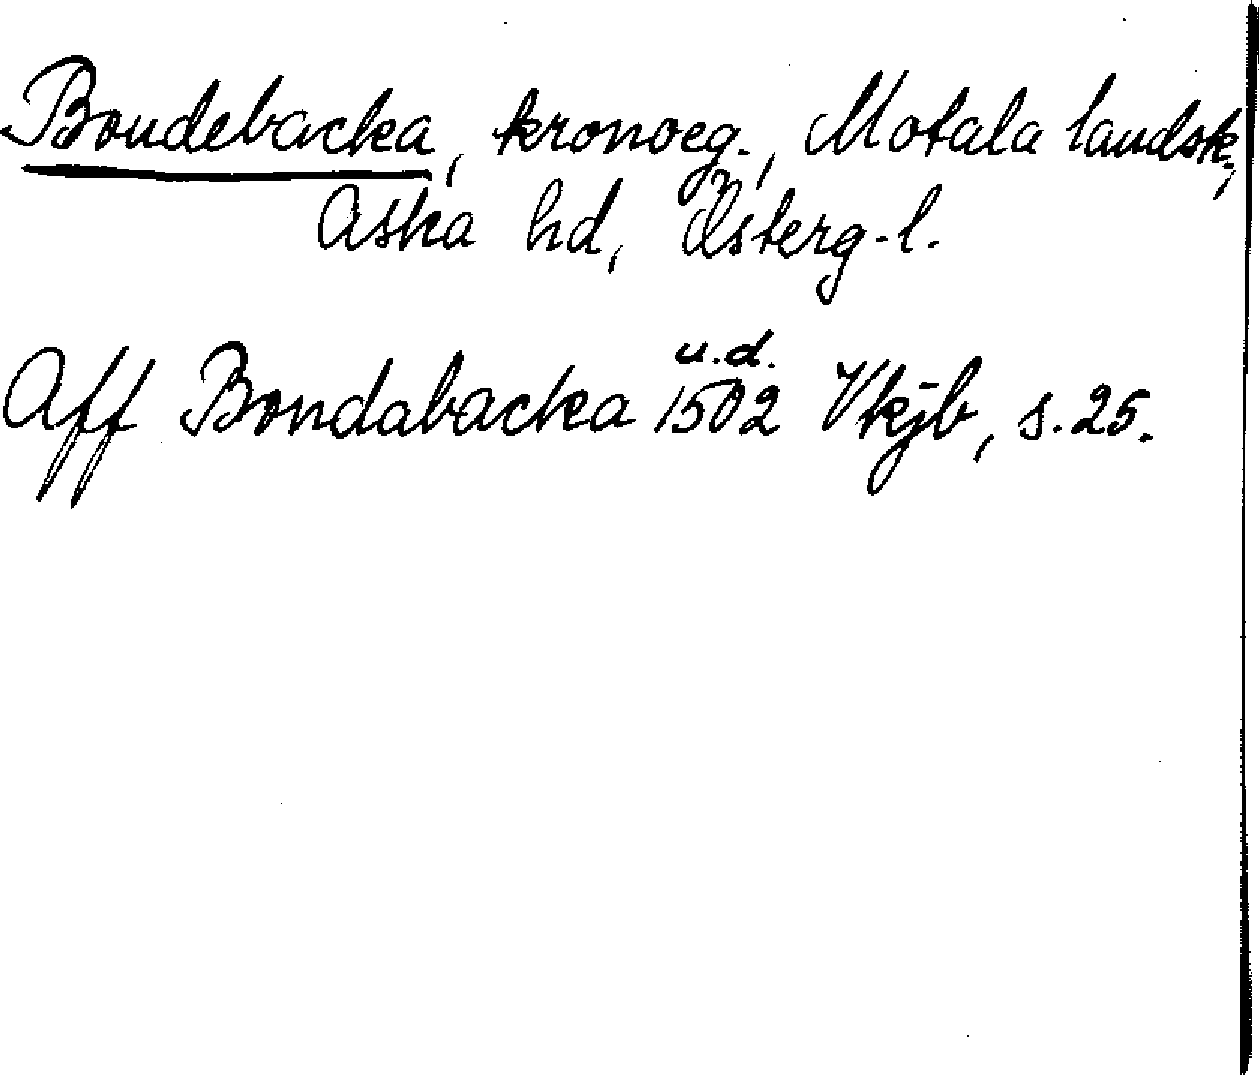 Bondebacka, kronoeg., Motala landsk.,
Aska hd, Österg. l.
u.d.
Aff Bondabacka 1502 Vkjb, s. 25.